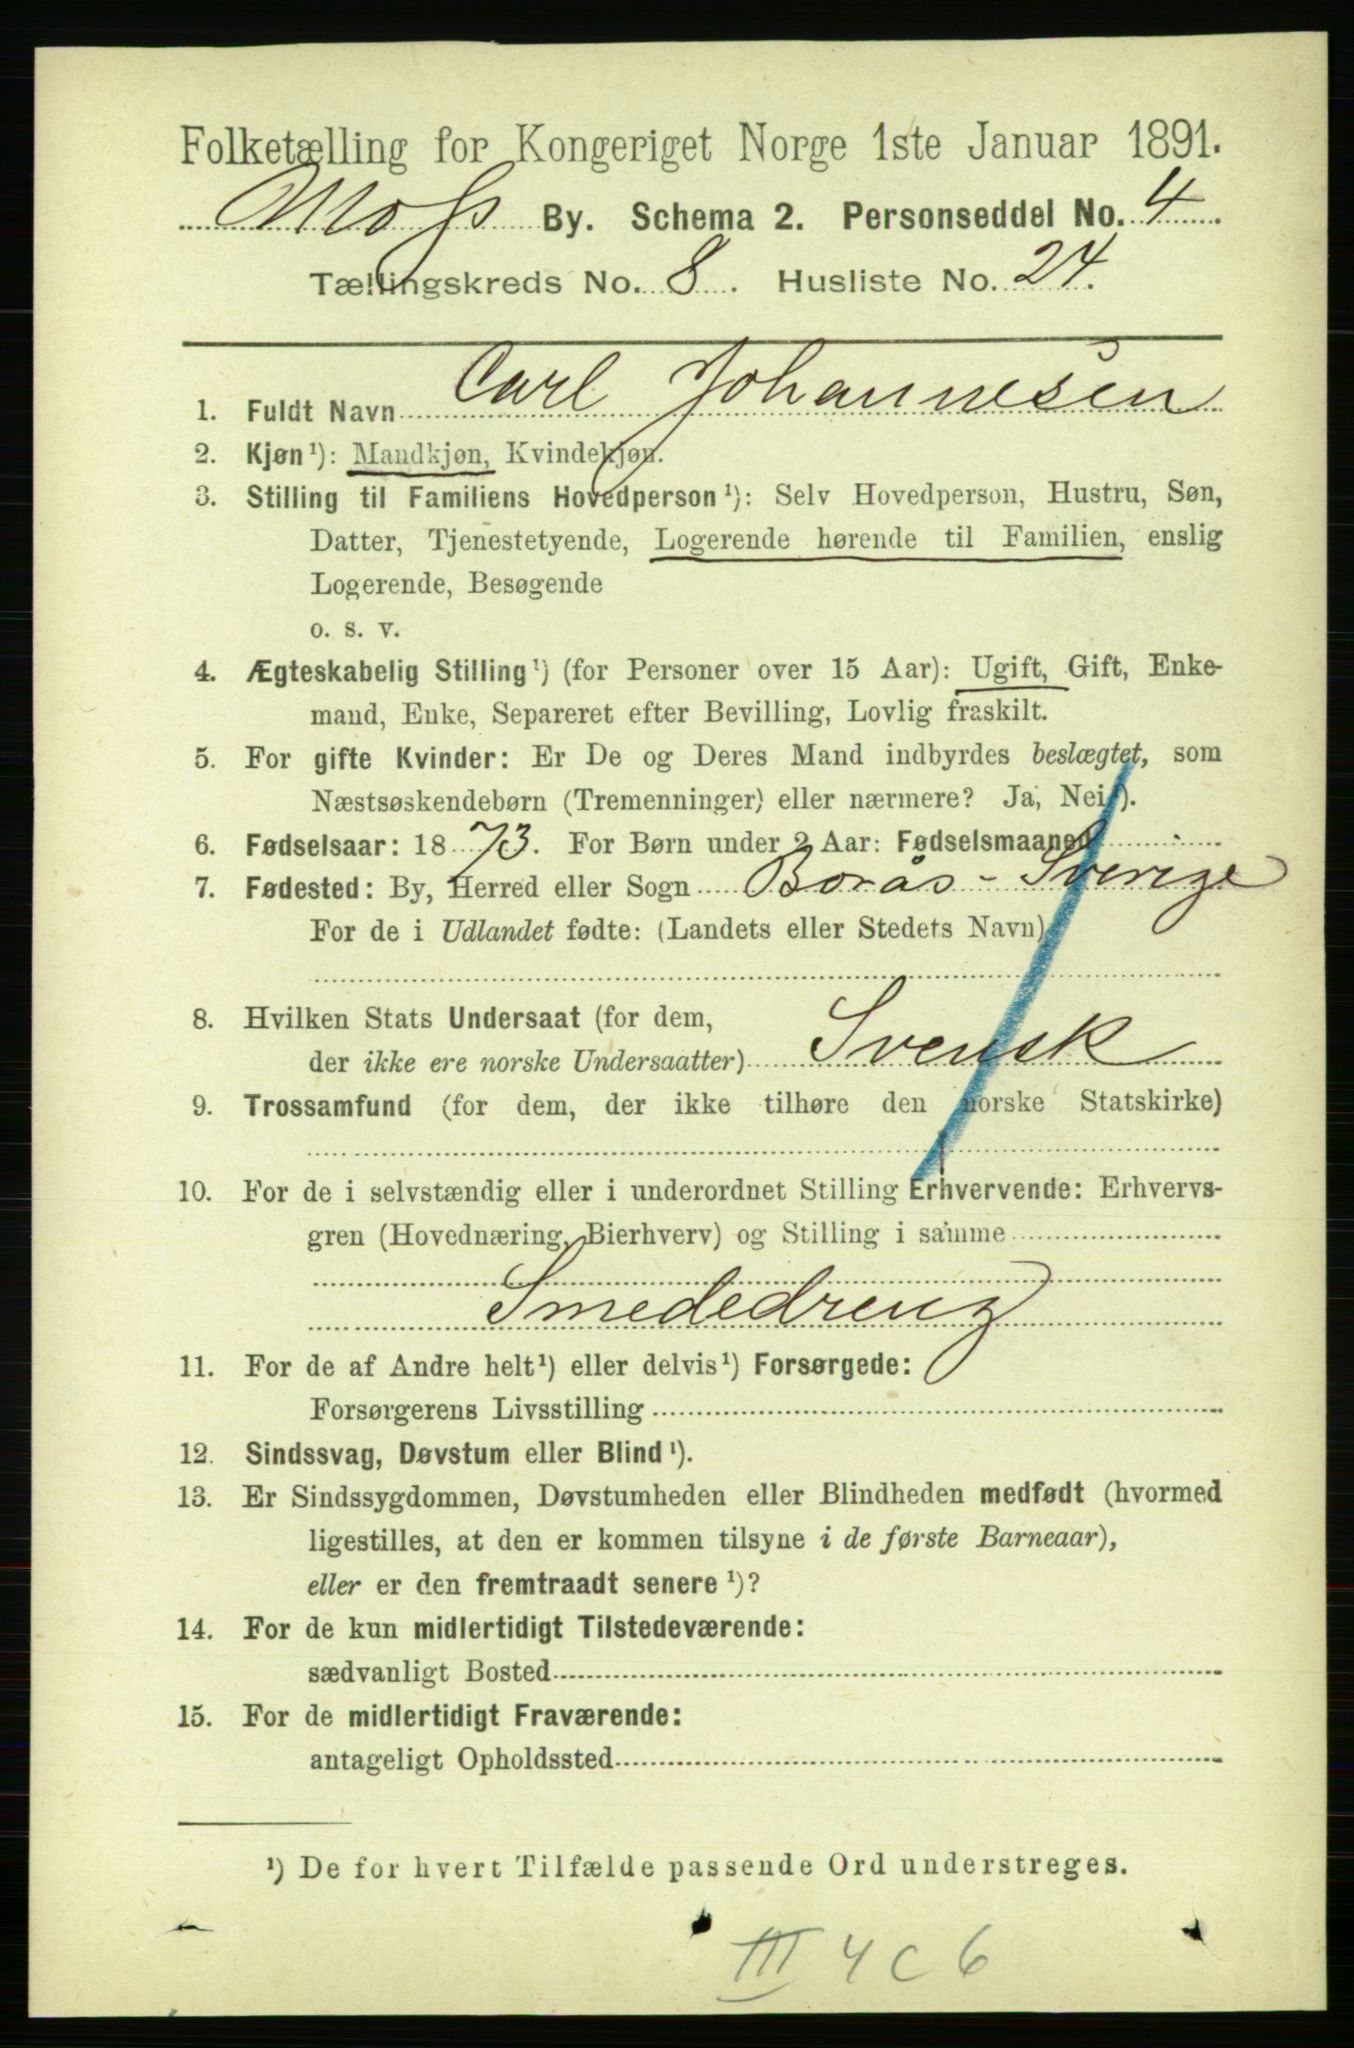 Folketælling for Kongeriget Norge 1ste Januar 1891.
Moss By. Schema 2. Personseddel No. 4
Tællingskreds No. 8. Husliste No. 24.
1. Fuldt Navn Carl Johannesen
2. Kjøn¹): Mandkjøn, Kvindekjøn.
3. Stilling til Familiens Hovedperson¹): Selv Hovedperson, Hustru, Søn,
Datter, Tjenestetyende, Logerende hørende til Familien, enslig
Logerende, Besøgende
o. s. v.
4. Ægteskabelig Stilling¹) (for Personer over 15 Aar): Ugift, Gift, Enke-
mand, Enke, Separeret efter Bevilling, Lovlig fraskilt.
5. For gifte Kvinder: Er De og Deres Mand indbyrdes beslægtet, som
Næstsøskendebørn (Tremenninger) eller nærmere? Ja, Nei¹).
6. Fødselsaar: 1873. For Børn under 2 Aar: Fødselsmaaned
7. Fødested: By, Herred eller Sogn Borås - Sverige
For de i Udlandet fødte: (Landets eller Stedets Navn)
8. Hvilken Stats Undersaat (for dem,
der ikke ere norske Undersaatter) Svensk
9. Trossamfund (for dem, der ikke tilhøre den norske Statskirke)
10. For de i selvstændig eller i underordnet Stilling Erhvervende: Erhvervs-
gren (Hovednæring, Bierhverv) og Stilling i samme
Smededreng
11. For de af Andre helt¹) eller delvis¹) Forsørgede:
Forsørgerens Livsstilling
12. Sindssvag, Døvstum eller Blind¹).
13. Er Sindssygdommen, Døvstumheden eller Blindheden medfødt (hvormed
ligestilles, at den er kommen tilsyne i de første Barneaar),
eller er den fremtraadt senere¹)?
14. For de kun midlertidigt Tilstedeværende:
sædvanligt Bosted
15. For de midlertidigt Fraværende:
antageligt Opholdssted
¹) De for hvert Tilfælde passende Ord understreges.
III 4 c 6